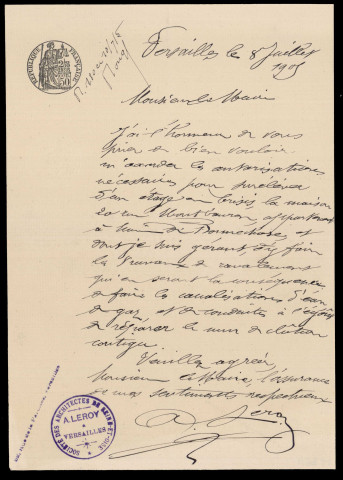 RÉPUBLIQUE FRANÇAISE
Versailles le 8 Juillet
1905
Monsieur le Maire
J'ai l'honneur de vous
prier de bien vouloir
m'accorder les autorisations
nécessaires pour surélever
d'un étage en brisis la maison
20 rue Montbauron, appartenant
à
dont je suis gérant, d'y faire
les travaux de ravalement
qui en seront la conséquence
de faire les canalisations d'eau
de gaz, et de conduite à l'égout
de réparer le mur de clôture
contigu.
Veuillez agréer,
Monsieur le Maire, l'assurance
de mes sentiments respectueux
A. Leroy
SOCIÉTÉ DES ARCHITECTES DE SEINE-ET-OISE
A. LEROY
VERSAILLES